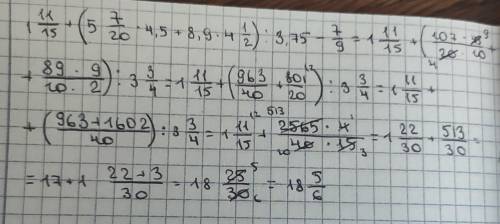 1 11/15 + (5 7/20 · 4,5 + 8,9 · 4 1/2) : 3,75 - 7/9 = 1 11/15 + (107 · 9/20 · 10
+ 89 · 9/10 · 2) : 3 3/4 = 1 11/15 + (963/40 + 801/20) : 3 3/4 = 1 11/15 +
+ (963 + 1602/40) : 3 3/4 = 1 11/15 + 2565 · 4/40 · 15 = 1 22/30 + 513/30 =
= 17 + 1 22 + 3/30 = 18 25/30 = 18 5/6